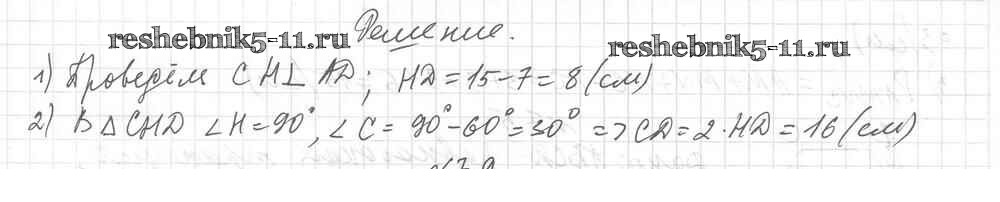 Решение.
reshebnik5-11.ru
reshebnik5-11.ru
1) Проведём CH⊥AD; HD=15-7=8(см)
2) В △CHD ∠H=90°, ∠C=90°-60°=30° => CD=2·HD=16(см)